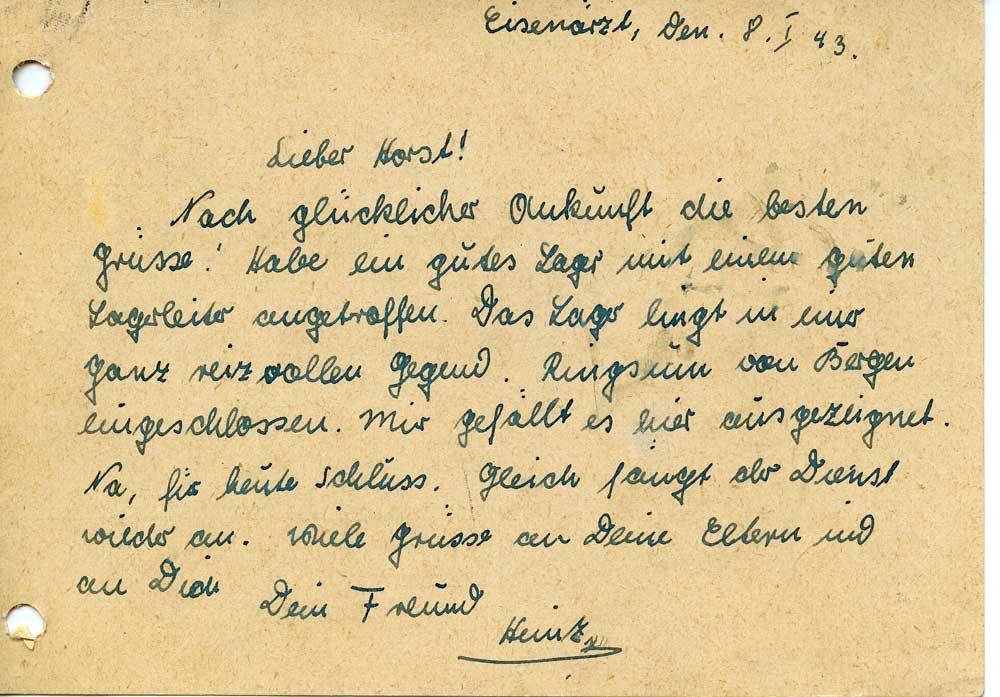 Eisenärzt, den. 8. I 43.
Lieber Horst!
Nach glücklicher Ankunft die besten
Grüsse! Habe ein gutes Lager mit einem guten
Lagerleiter angetroffen. Das Lager liegt in einer
ganz reizvollen Gegend. Ringsum von Bergen
eingeschlossen. Mir gefällt es hier ausgezeignet.
Na, für heute Schluss. Gleich fängt der Dienst
wieder an. Viele Grüsse an Deine Eltern und
an Dich
Dein Freund
Heinz